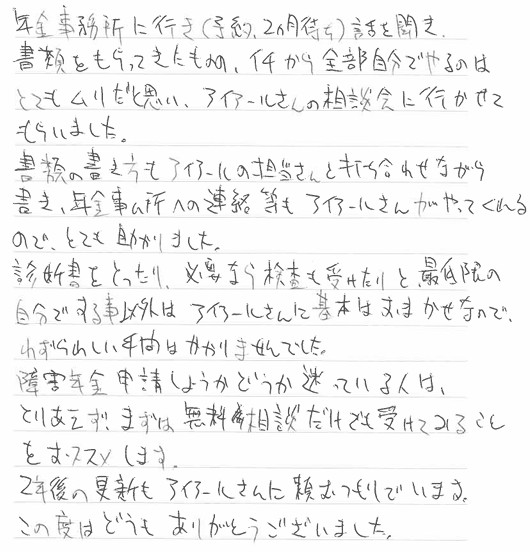 年金事務所に行き(予約、2ヵ月待ち)話を聞き、
書類をもらってきたものの、イチから全部自分でやるのは
とてもムリだと思い、アイアールさんの相談会に行かせて
もらいました。
書類の書き方もアイアールの担当さんと打ち合わせながら
書き、年金事ム所への連絡等もアイアールさんがやってくれる
ので、とても助かりました。
診断書をとったり、必要なら検査も受けたりと、最低限の
自分でする事以外はアイアールさんに基本はおまかせなので、
わずらわしい手間はかかりませんでした。
障害年金申請しようかどうか迷っている人は、
とりあえず、まずは無料相談だけでも受けてみること
をおススメします。
2年後の更新もアイアールさんに頼むつもりでいます。
この度はどうもありがとうございました。